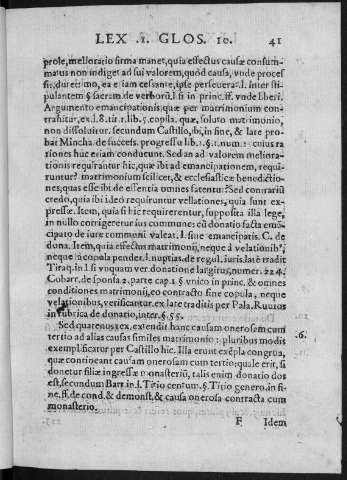 LEX .1. GLOS. 10. 41
prole, mellorario firma manet, quia effectus causæ consum-
matus non indiget ad sui valorem, quòd causa, vnde proces
sit, duret imo, ea etiam cessante, ipse perseuerat. l. inter sti-
pulantem § sacram. de verborũ. l. fi in princ. ff. vnde liberi.
Argumento emancipationis. quæ per matrimonium con-
trahitur, ex. l. 8. tit. 1. lib. 5. copila. quæ, soluto matrimonio,
non dissoluitur. secundum Castillo, ibi, in fine, & late pro-
bat Mincha. de succesis. progressu lib. 1. §. 1. num. cuius ra
tiones huc etiam conducunt. Sed an ad valorem meliora-
tionis requirantur hic, quæ ibi ad emancipationem, requi-
runtur? matrimonium scilicet, & ecclesiasticæ benedictio-
nes, quas esse ibi de essentia omnes fatentur? Sed contrariũ
credo, quia ibi ideò requiruntur vellationes, quia sunt ex-
pressæ. Item, quia si hic requirerentur, supposita illa lege,
in nullo corrigeretur ius commune: cũ donatio facta emãci-
cipato de iure communi valeat. l. sine emancipatis. C. de
dona. Item, quia effectus matrimonij, neque à velationib',
neque à copula pender. l. nuptias. de regul. iuris. late tradit
Tiraq. in l. si vnquam ver. donatione largitus, numer. 224.
Cobarr. de sponsa 2. parte cap. 1 § vnico in princ. & omnes
conditiones matrimonij, eo contracto sine copula, neque
velationibus, verificantur. ex late traditis per Pala. Ruuios
in rubrica de donatio, inter. §. 55.
Sed quatenus ex. extendit hanc causam onerosam cum .6.
tertio ad alias causas similes matrimonio: pluribus modis
exemplificatur per Castillo hic. Illa erunt exẽpla congrua,
quæ contineant causam onerosam cum tertio: quale erit, si
donetur filiæ ingressæ monasteriũ, talis enim donatio dos
est, secundum Bart. in l. Titio centum. §. Titio genero, in fi
ne. ff. de cond. & demonst. & causa onerosa contracta cum
monasterio.
F Idem